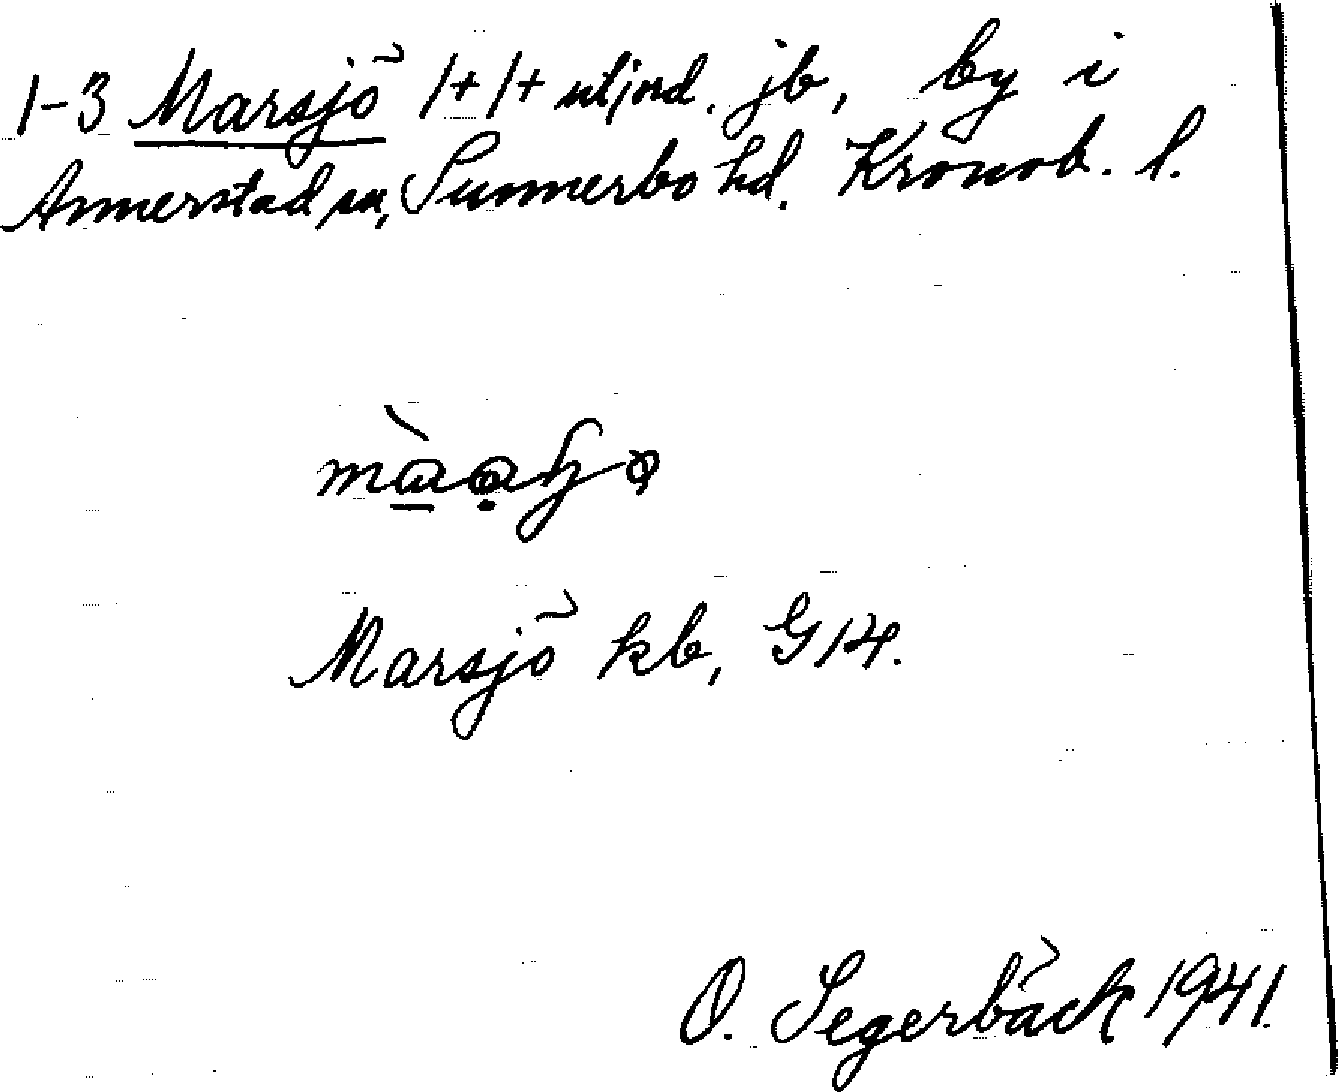 1-3 Marsjö 1+1+utjord. jb, by i
Annerstad sn, Sunnerbo hd. Kronob. l.
Marsjö kb, G14.
O. Segerbäck 1941.